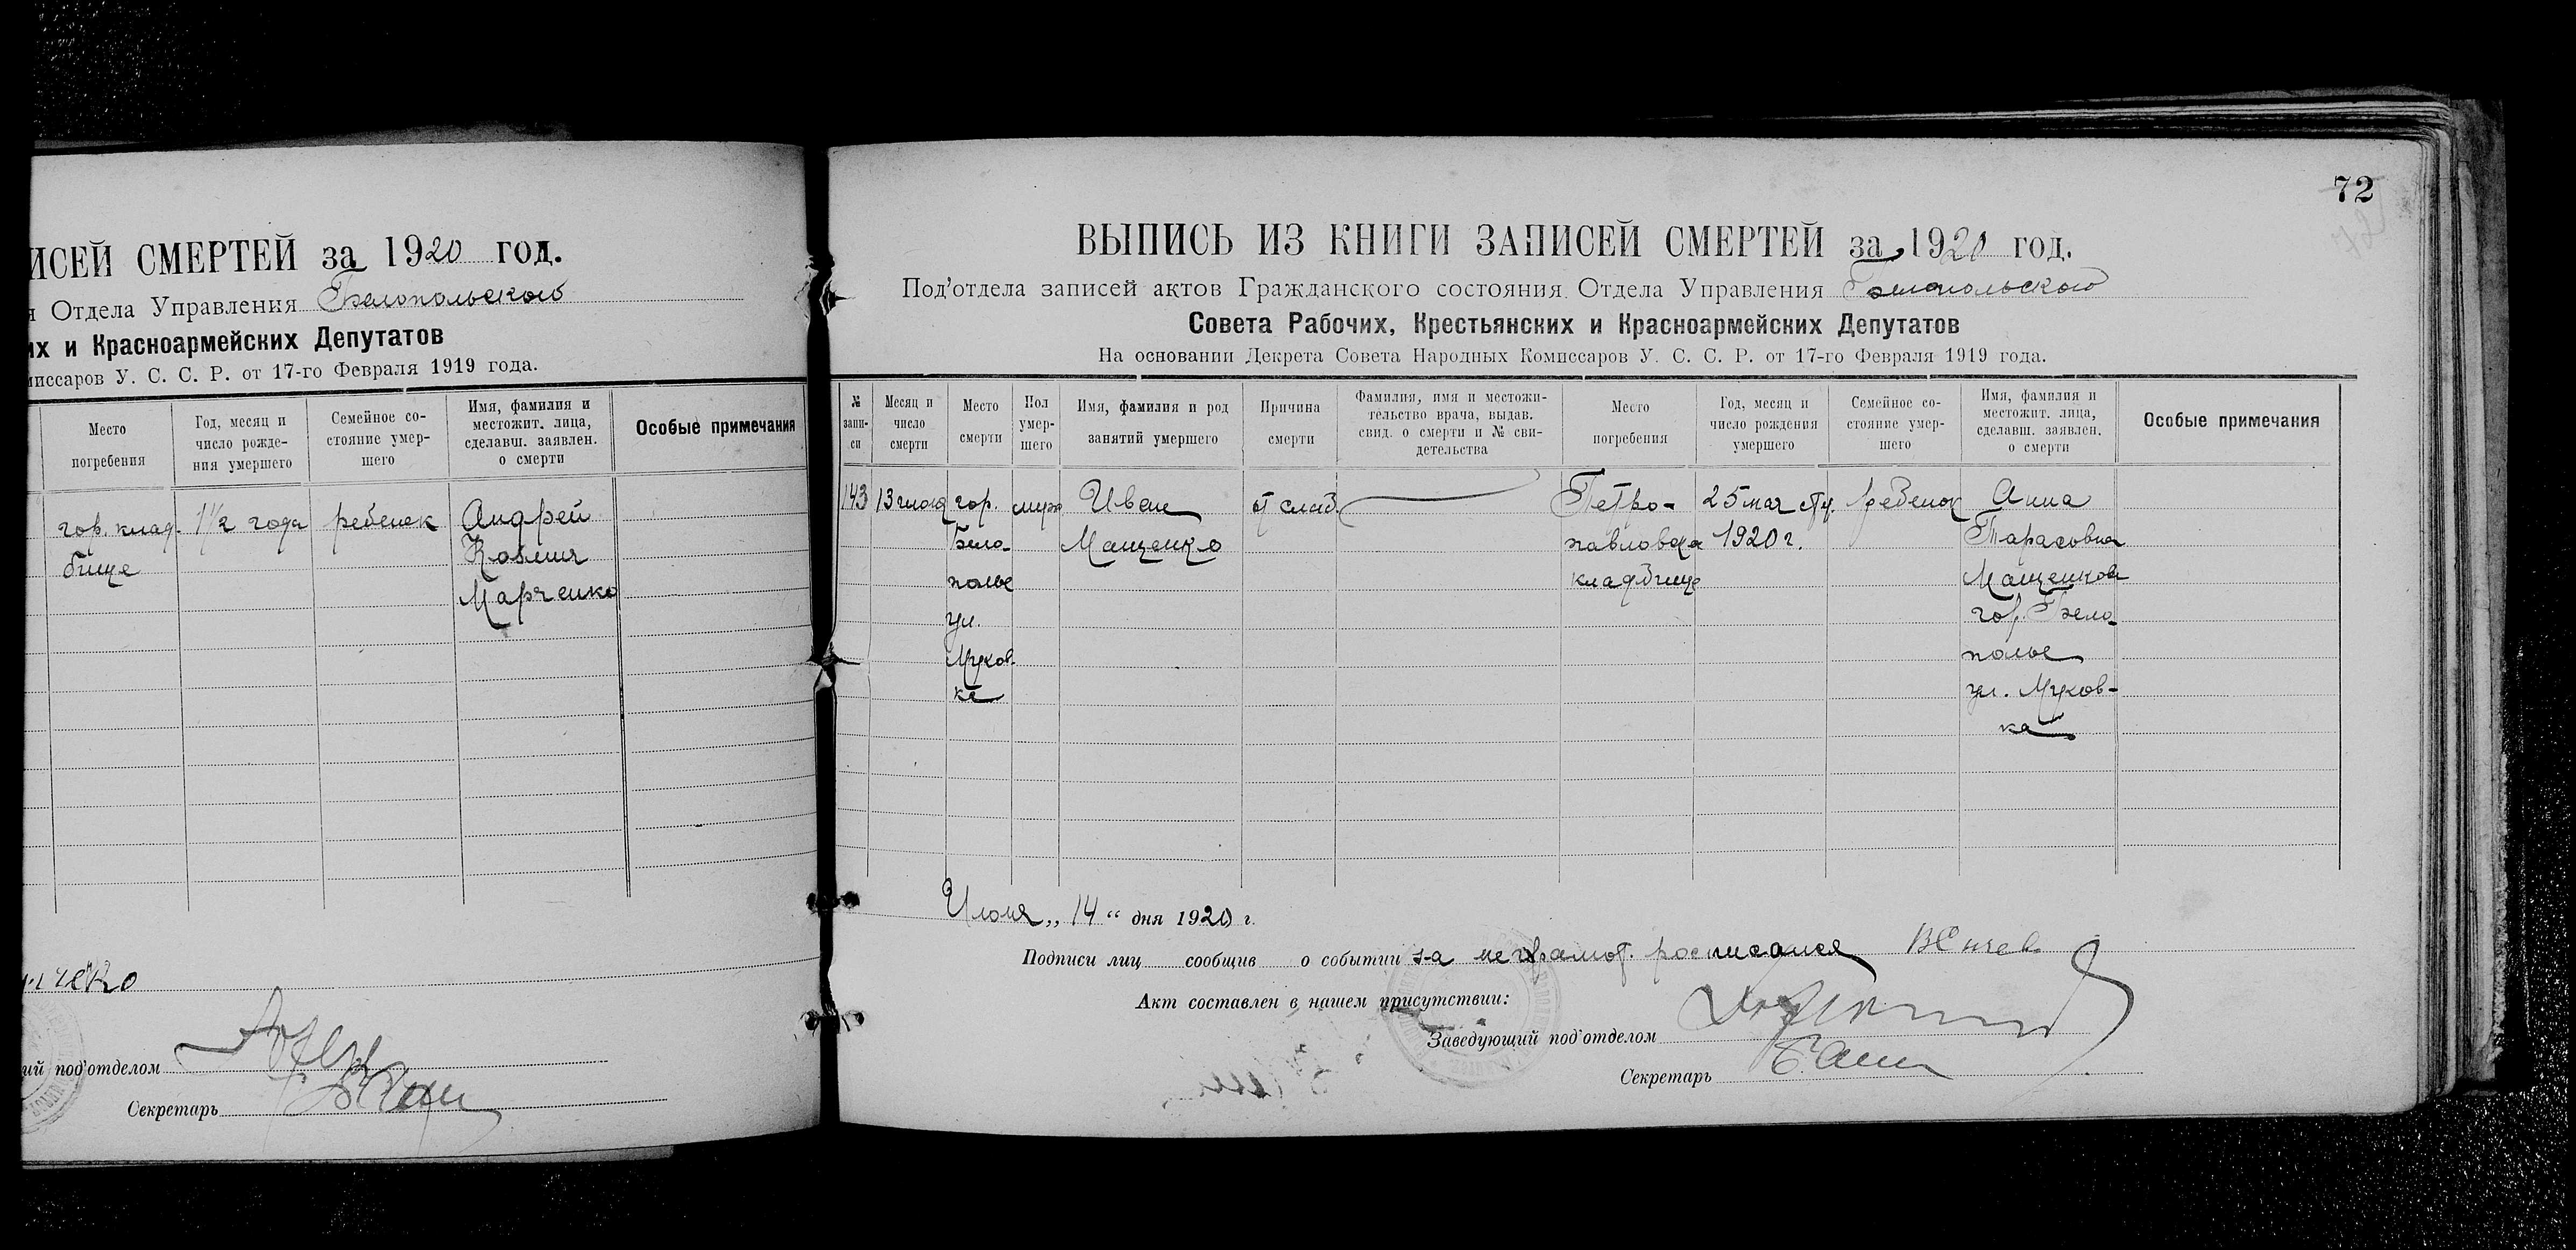 ИСЕЙ СМЕРТЕЙ за 1920 год.
я Отдела Управления Белопольского
их и Красноармейских Депутатов
миссаров У. С. С. Р. от 17-го Февраля 1919 года.
Место погребения
Год, месяц и число рожде-ния умершего
Семейное со-стояние умер-шего
Имя, фамилия и местожит. лица, сделавш. заявлен. о смерти
Особые примечания
гор. клад-
бище
1½ года
ребенек
Андрей
Марченко
ченко
ий под'отделом
Секретарь
72
ВЫПИСЬ ИЗ КНИГИ ЗАПИСЕЙ СМЕРТЕЙ за 1920 год.
Под'отдела записей актов Гражданского состояния Отдела Управления Белопольского
Совета Рабочих, Крестьянских и Красноармейских Депутатов
На основании Декрета Совета Народных Комиссаров У. С. С. Р. от 17-го Февраля 1919 года.
№ запи-си
Месяц и число смерти
Место смерти
Пол умер-шего
Имя, фамилия и род занятий умершего
Причина смерти
Фамилия, имя и местожи-тельство врача, выдав. свид. о смерти и № сви-детельства
Место погребения
Год, месяц и число рождения умершего
Семейное со-стояние умер-шего
Имя, фамилия и местожит. лица, сделавш. заявлен. о смерти
Особые примечания
143
13
гор.
Бело-
полье
ул.
Муков-
ке
Иван
Мащенко
от слаб.
Петро-
павловское
кладбище
25 мая ст.
1920 г.
ребенок
Анна
Тарасовна
Мащенкова
гор. Бело-
полье
ул. Муков-
ка
Июля „ 14 “ дня 1920 г.
Подписи лиц сообщив о событии з-а неграмот. росписался
Акт составлен в нашем присутствии:
Заведующий под'отделом
Секретарь